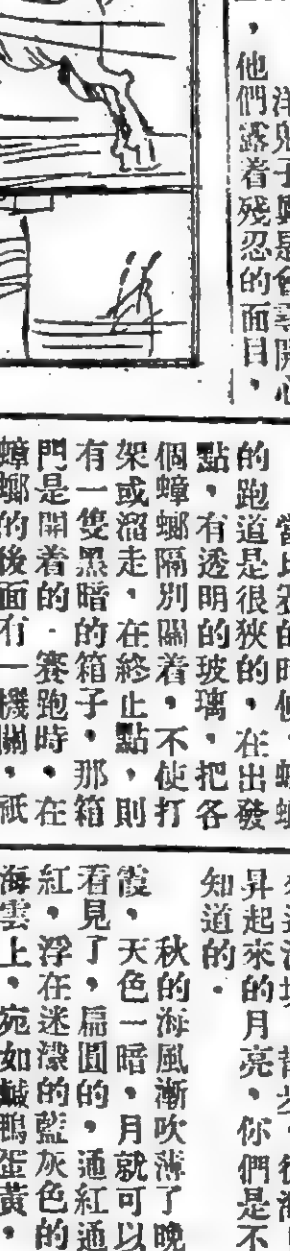 洋鬼子真是會尋開心
，他們露着殘忍的面目，
當比賽的時候，蟑螂
的跑道是很狹的，在出發
點，有透明的玻璃，把各
個蟑螂隔別關着，不使打
架或溜走，在終止點，則
有一隻黑暗的箱子，那箱
門是開着的．賽跑時，在
蟑螂的後面有一機關，祇
昇起來的月亮，你們是不
知道的．
秋的海風漸吹薄了晚
霞，天色一暗，月就可以
看見了，扁圓的，通紅通
紅，浮在迷濛的藍灰色的
海雲上，宛如鹹鴨蛋黃，